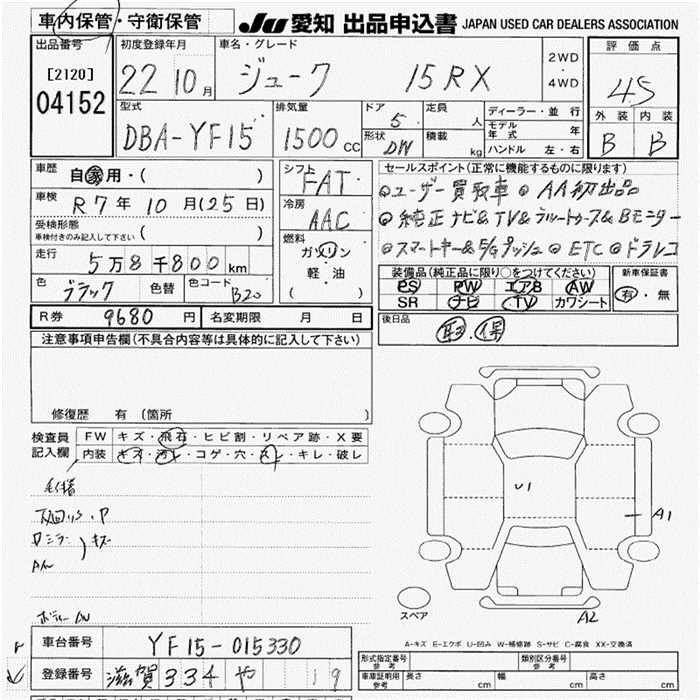 車内保管・守衛保管
JU 愛知 出品申込書 JAPAN USED CAR DEALERS ASSOCIATION
出品番号
[2120]
04152
初度登録年月
22 10月
車名・グレード
ジューク 15RX
2WD
・
4WD
評価点
4.5
外装 内装
B B
型式
DBA-YF15
排気量
1500cc
ドア
5
形状
DW
定員
人
積載
kg
ディーラー・並行
モデル年式 年
ハンドル 左・右
車歴
自家用・( )
車検
R7年10月(25日)
受検形態
車検付きのみ記入して下さい ( )
走行
5万8千800km
色
ブラック
色替
色コード
B20
シフト
FAT
冷房
AAC
燃料
ガソリン
軽・油
( )
セールスポイント(正常に機能するものに限ります)
◎ユーザー買取車 ◎AA初出品
◎純正ナビ&TV&ブルートゥース&Bモニター
◎スマートキー&E/Gプッシュ ◎ETC ◎ドラレコ
装備品(純正品に限り○をつけてください)
PS PW エアB AW
SR ナビ TV カワシート
新車保証書
有・無
後日品
取・保
R券 9680円
名変期限 月 日
注意事項申告欄(不具合内容等は具体的に記入して下さい)
修復歴 有(箇所 )
検査員記入欄
FW キズ・飛石・ヒビ割・リペア跡・X要
内装 キズ・汚レ・コゲ・穴・スレ・キレ・破レ
キズ
U1
A1
A2
スペア
A-キズ E-エクボ U-凹み W-補修跡 S-サビ C-腐食 XX-交換済
車台番号 YF15-015330
登録番号 滋賀 334 や 19
形式指定番号
参考
類別区分番号
参考
車庫証明用
参考
長さ cm
幅 cm
高さ cm